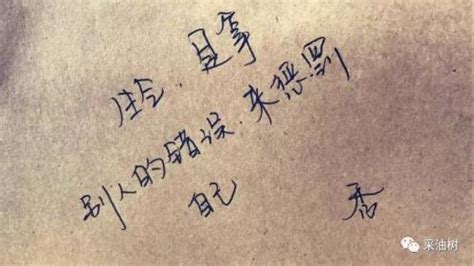 生气．是拿
别人的错误．来惩罚
自己
否
采油树